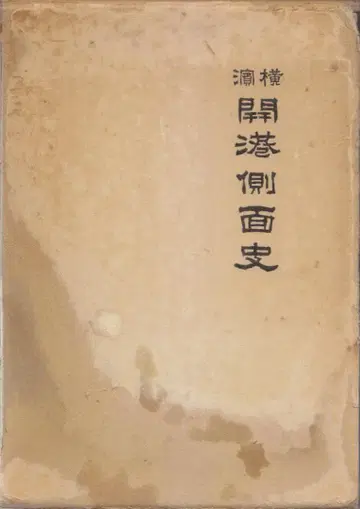 横濱
開港側面史